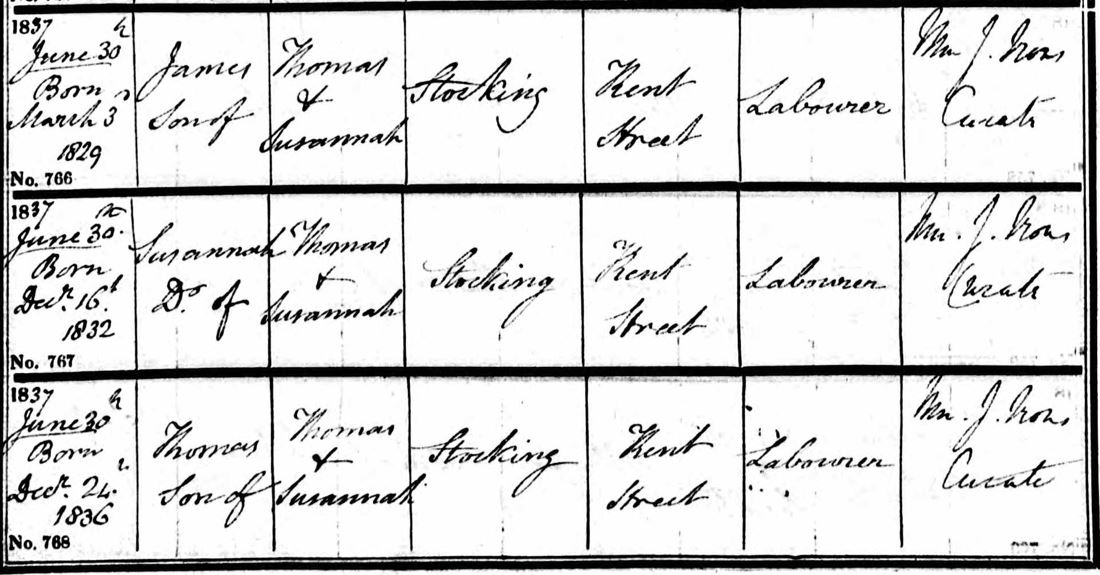 1837
June 30th
Born
March 3d
1829
No. 766
James
Son of
Thomas
&
Susannah
Stocking
Kent
Street
Labourer
Wm J. Irons
Curate
1837
June 30th
Born
Decr. 16th
1832
No. 767
Susannah
Do. of
Thomas
+
Susannah
Stocking
Kent
Street
Labourer
Wm. J. Irons
Curate
1837
June 30th
Born
Decr. 24.
1836
No. 768
Thomas
Son of
Thomas
+
Susannah
Stocking
Kent
Street
Labourer
Wm. J. Irons
Curate